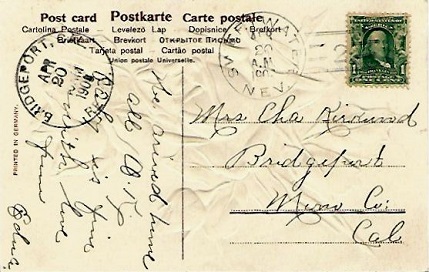 Post card Postkarte Carte postale
Cartolina Postale Levelező Lap Dopisnice Brefkort
Briefkaart Brevkort ОТКРЫТОЕ ПИСЬМО
Tarjeta postal Cartão postal
Union postale Universelle.
SWEETWATER
20
A.M.
NEV.
BRIDGEPORT,
APR
20
1908
PRINTED IN GERMANY.
We arrived home
all O.K.
Baby is fine
with love
from
Edna
Mrs Cha Kirkwood
Bridgeport
Mono Co.
Cal